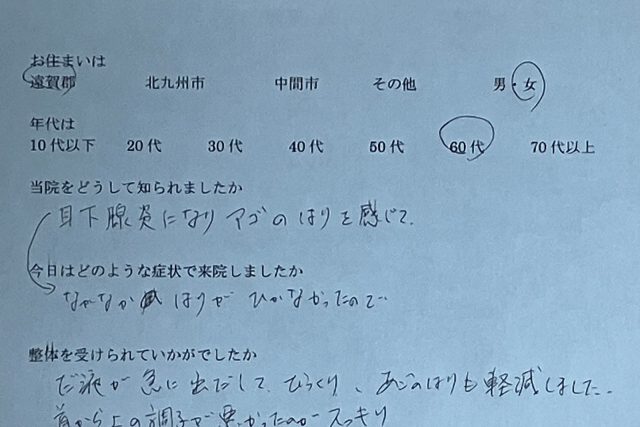 お住まいは
遠賀郡 北九州市 中間市 その他 男・女
年代は
10代以下 20代 30代 40代 50代 60代 70代以上
当院をどうして知られましたか
耳下腺炎になり アゴのはりを感じて.
今日はどのような症状で来院しましたか
なかなか はりが ひかなかったので…
整体を受けられていかがでしたか
だ液が急に出だして、びっくり、あごのはりも軽減しました..
首から上の調子が悪かったのがスッキリ